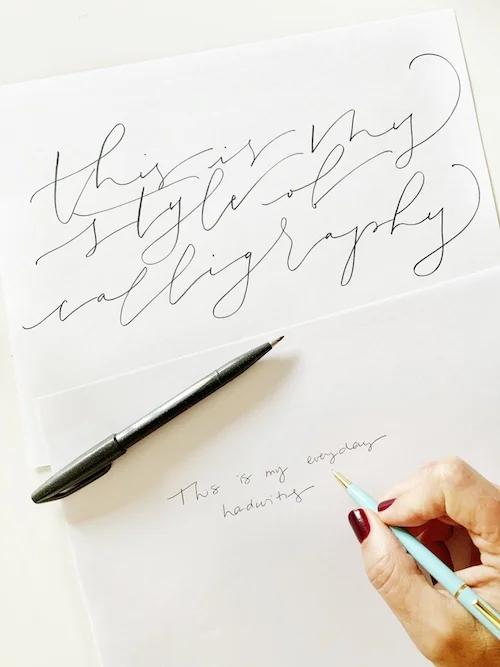 this is my
style of
calligraphy
This is my everyday
hadwriting